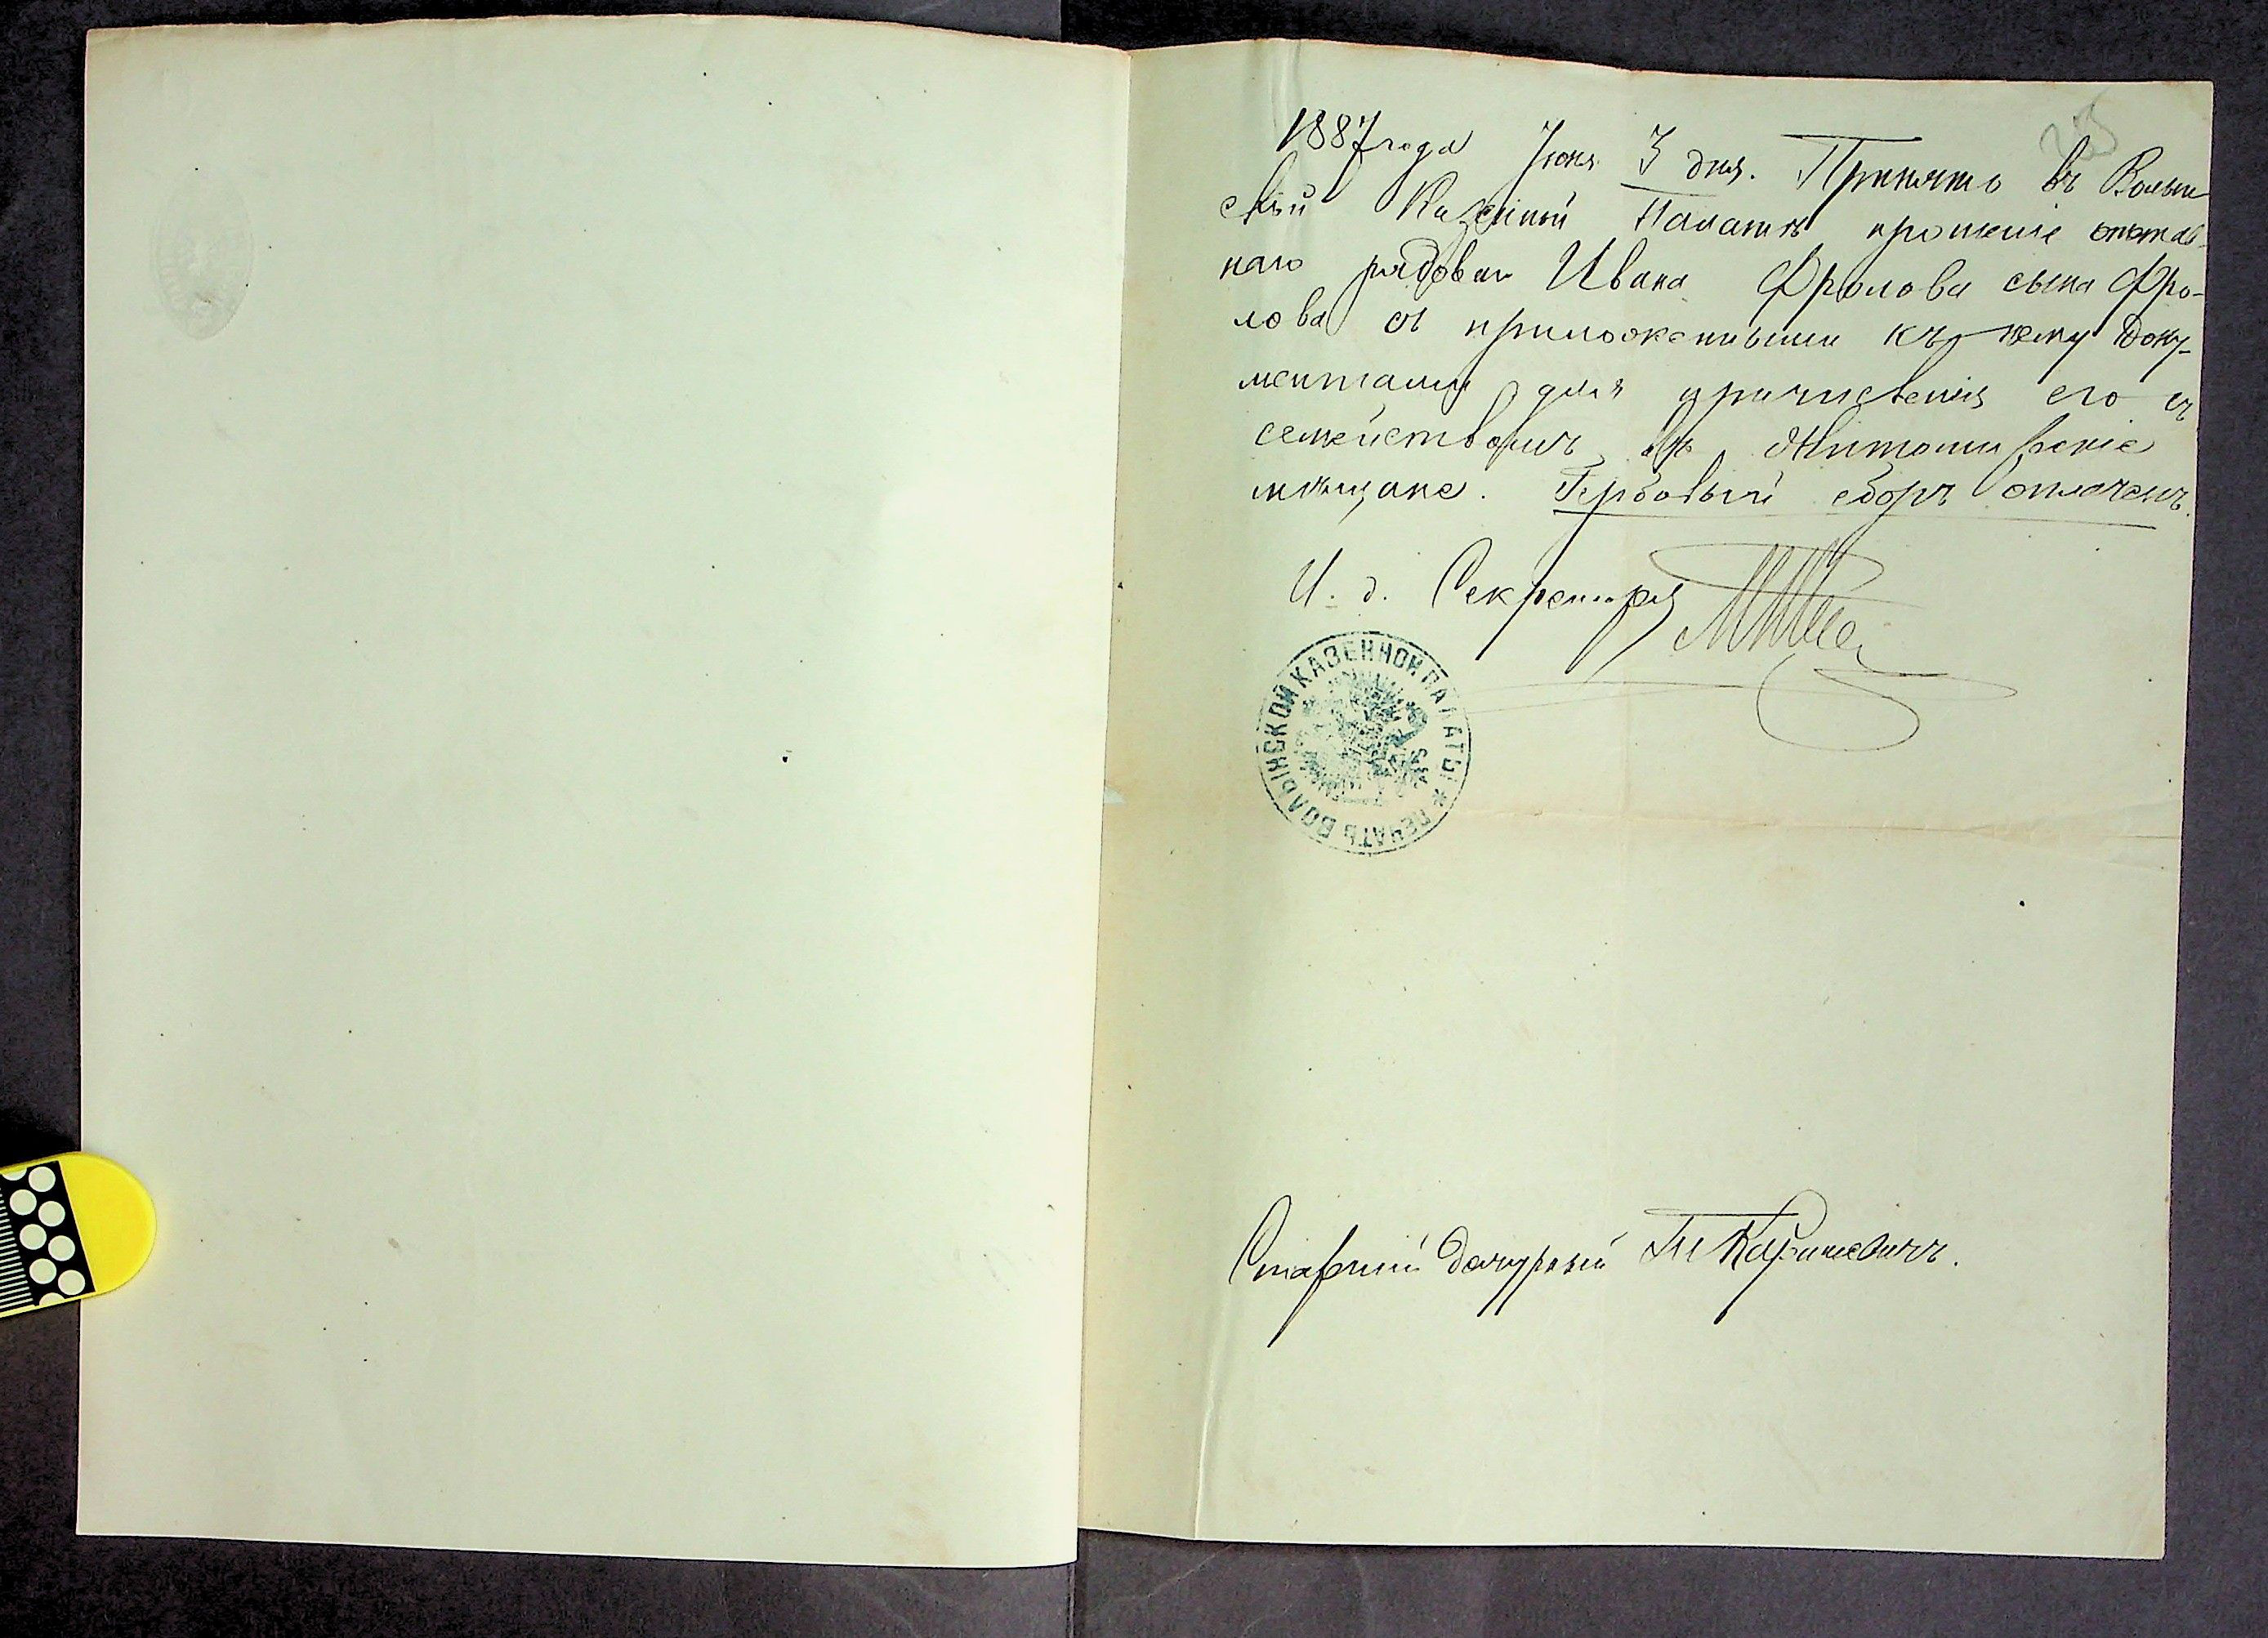 1887 года Іюня 3 дня. Принято въ Волын
ской Казенной Палатѣ прошеніе отстав-
наго рядоваго Ивана Фролова сына Фро-
лова съ приложенными къ нему доку-
ментами для причисленія его съ
семействомъ въ Житомирскіе
мѣщане. Гербовый сборъ оплаченъ.
И. д. Секретаря
ПЕЧАТЬ ВОЛЫНСКОЙ КАЗЕННОЙ ПАЛАТЫ *
Старшій дежурный